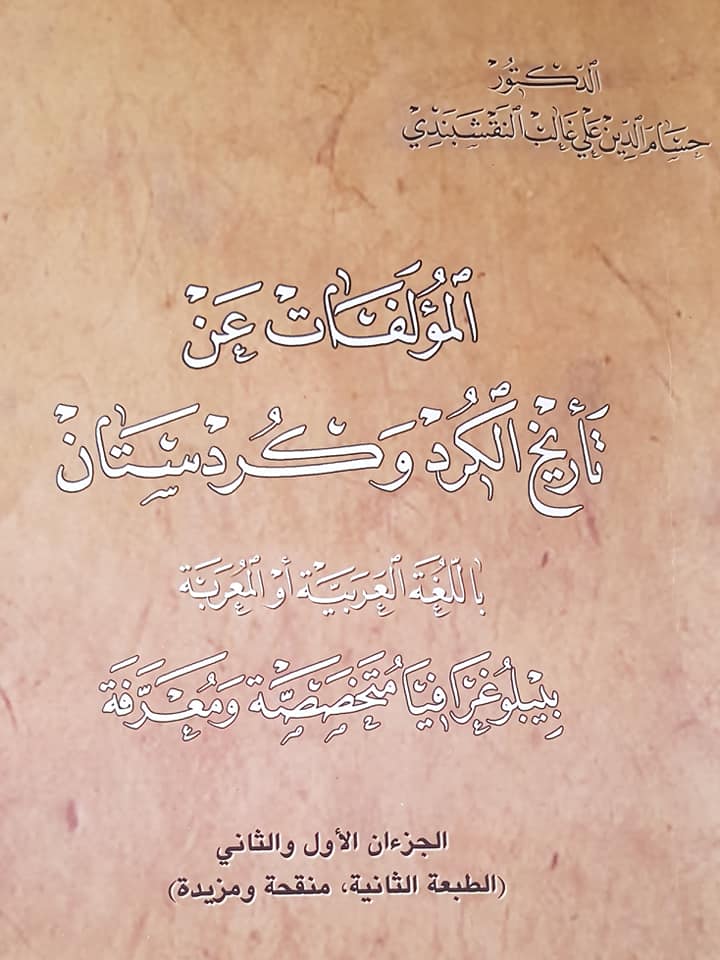 الدكتور
حسام الدين علي غالب النقشبندي
المؤلفات عن
تأريخ الكرد وكردستان
باللغة العربية أو المعربة
بيبلوغرافيا متخصصة ومعرفة
الجزءان الأول والثاني
(الطبعة الثانية، منقحة ومزيدة)